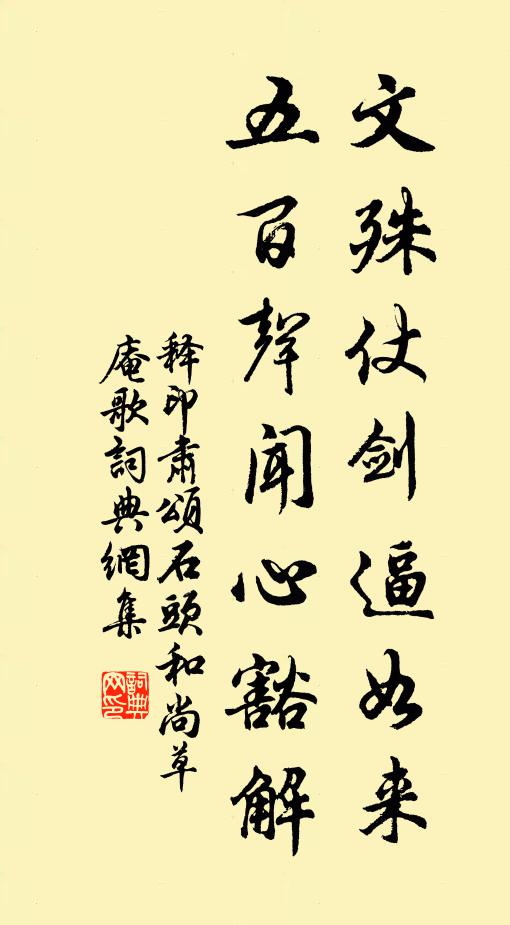 文殊仗剑逼如来
五百声闻心豁解
释印肃颂石头和尚草
庵歌词典网集
词典
网印